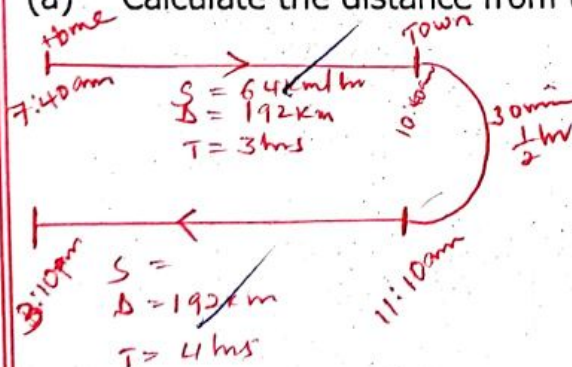 (a) Calculate the distance from
Home
Town
7:40am
S = 64km/hr
D = 192km
T = 3hrs
10:40am
30min
1/2 hr
3:10pm
11:10am
S =
D = 192km
T = 4hrs